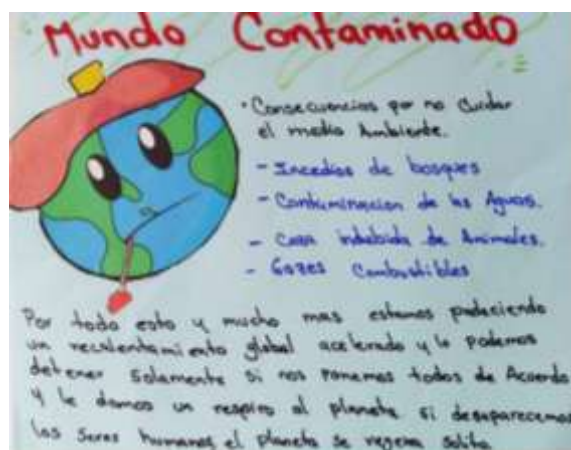 Mundo Contaminado
• Consecuencias por no Cuidar
el medio Ambiente.
- Incedios de bosques
- Contaminacion de las Aguas.
- Casa indebida de Animales.
- Gazes Combustibles
Por todo esto y mucho mas estamos padeciendo
un recalentamiento global acelerado y lo podemos
detener Solamente si nos ponemos todos de Acuerdo
y le damos un respiro al planeta si desaparecemos
los Seres humanos el planeta se regenera solito